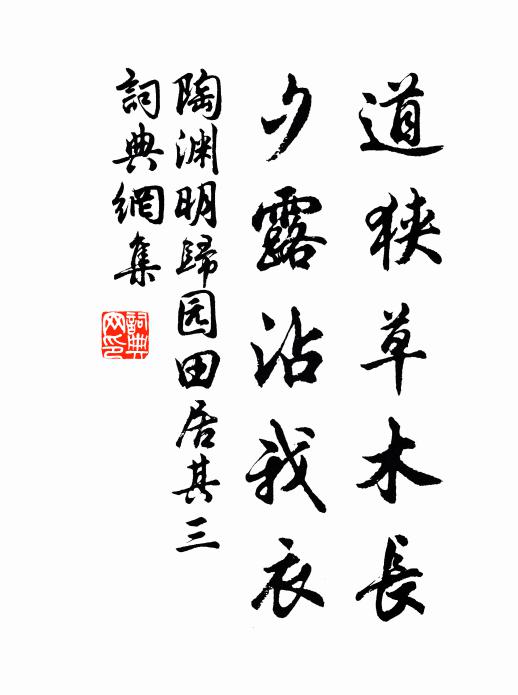 道狹草木長
夕露沾我衣
陶渊明歸园田居其三
詞典網集
詞典网印